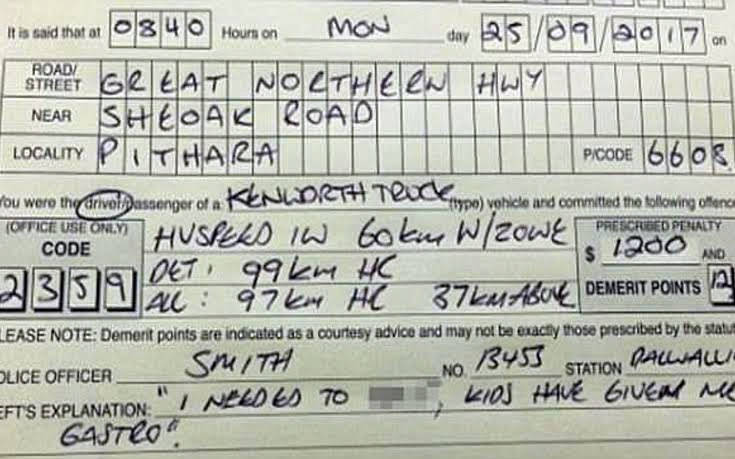 It is said that at 0840 Hours on MON day 25/09/2017 on
ROAD/STREET GREAT NORTHERN HWY
NEAR SHEOAK ROAD
LOCALITY PITHARA P/CODE 6608
You were the driver/passenger of a: KENWORTH TRUCK (type) vehicle and committed the following offence
(OFFICE USE ONLY) CODE 2359
HVSPEED IN 60km W/ZONE
DET: 99km HC
ALL: 97km HC 37km ABOVE
PRESCRIBED PENALTY
$ 1200 AND
DEMERIT POINTS 12
LEASE NOTE: Demerit points are indicated as a courtesy advice and may not be exactly those prescribed by the statut
OLICE OFFICER SMITH NO. 13453 STATION DALWALLI
EFT'S EXPLANATION: "I NEEDED TO , KIDS HAVE GIVEN ME
GASTRO".